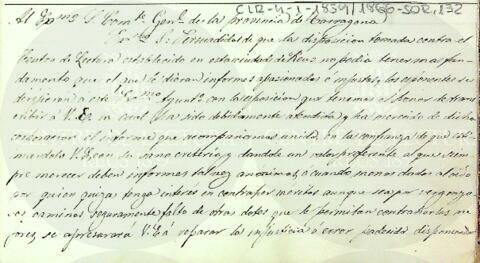 CLR-4-1-1859/1866-SOR,132
Al Exmo S. Com.te Gen.l de la provincia de Tarragona
Exmo S.: Persuadidos de que la disposicion tomada contra el
Centro de Lectura establecido en esta ciudad de Reus no podia tener mas fun-
damento que el que le dieran informes apasionados é injustos, los esponentes se
dirijieron á este Exmo Ayunt.o con la esposicion que tenemos el honor de trans-
cribir á V.E. la cual ha sido debidamente atendida y ha merecido de dicha
corporacion el informe que acompañamos unido, en la confianza de que esti-
mandolo V.E. con su sano criterio, y dandole un valor preferente al que siem-
pre merecer deben informes tal vez anonimos, ó cuando menos dados al oido
por quien quiza tenga interés en contraher meritos aunque sea por vergonzo-
sos caminos seguramente falto de otras dotes que le permitan contraherlos me-
jores, se apresurará V.E. á reparar la injusticia ó error padecido disponiendo